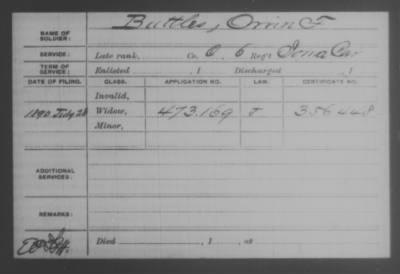 NAME OF SOLDIER: Buttles, Orrin F
SERVICE: Late rank, Co. C, 6 Reg't Iowa Cav
TERM OF SERVICE: Enlisted , 1 Discharged , 1
DATE OF FILING. CLASS. APPLICATION NO. LAW. CERTIFICATE NO.
Invalid,
1890 July 28 Widow, 473.169 356448
Minor,
ADDITIONAL SERVICES:
REMARKS:
Died , 1 , at